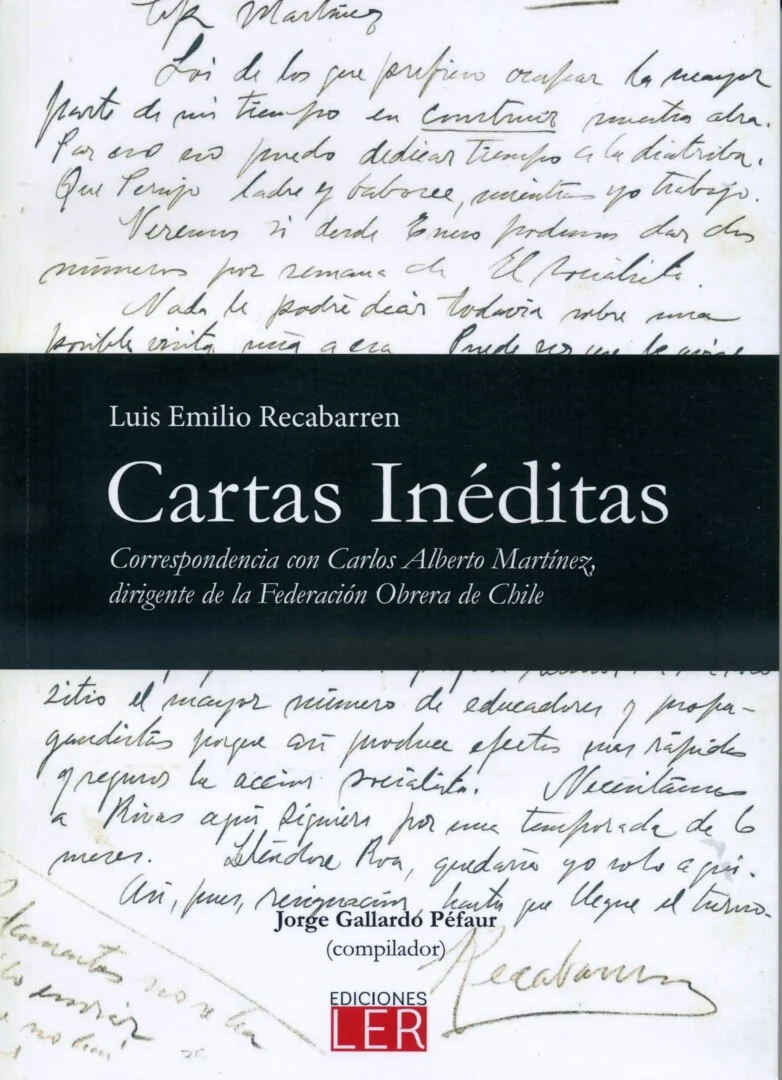 Martínez
Soi de los que prefiero ocupar la mayor
parte de mi tiempo en construir nuestra obra.
Por eso no puedo dedicar tiempo a la diatriba.
Que Perujo ladre y babosee, mientras yo trabajo.
Veremos si desde Enero podemos dar dos
números por semana de El Socialista.
Nada le podré decir todavía sobre una
posible visita mía a esa. Puede ser que le avise
Luis Emilio Recabarren
Cartas Inéditas
Correspondencia con Carlos Alberto Martínez,
dirigente de la Federación Obrera de Chile
sitio el mayor número de educadores y propa-
gandistas porque así produce efectos mas rápidos
y seguros la acción socialista. Necesitamos
a Rivas aquí siquiera por una temporada de 6
meses. Yéndose Roa, quedaría yo solo aquí.
Así, pues, resignación, hasta que llegue el turno.
Jorge Gallardo Péfaur
(compilador)
Recabarren
no se ha
enviar
EDICIONES
LER